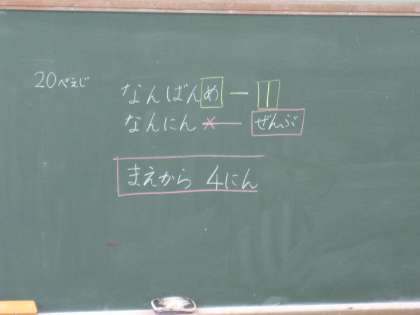 20ぺえじ
なんばんめー1
なんにん×ーぜんぶ
まえから 4にん